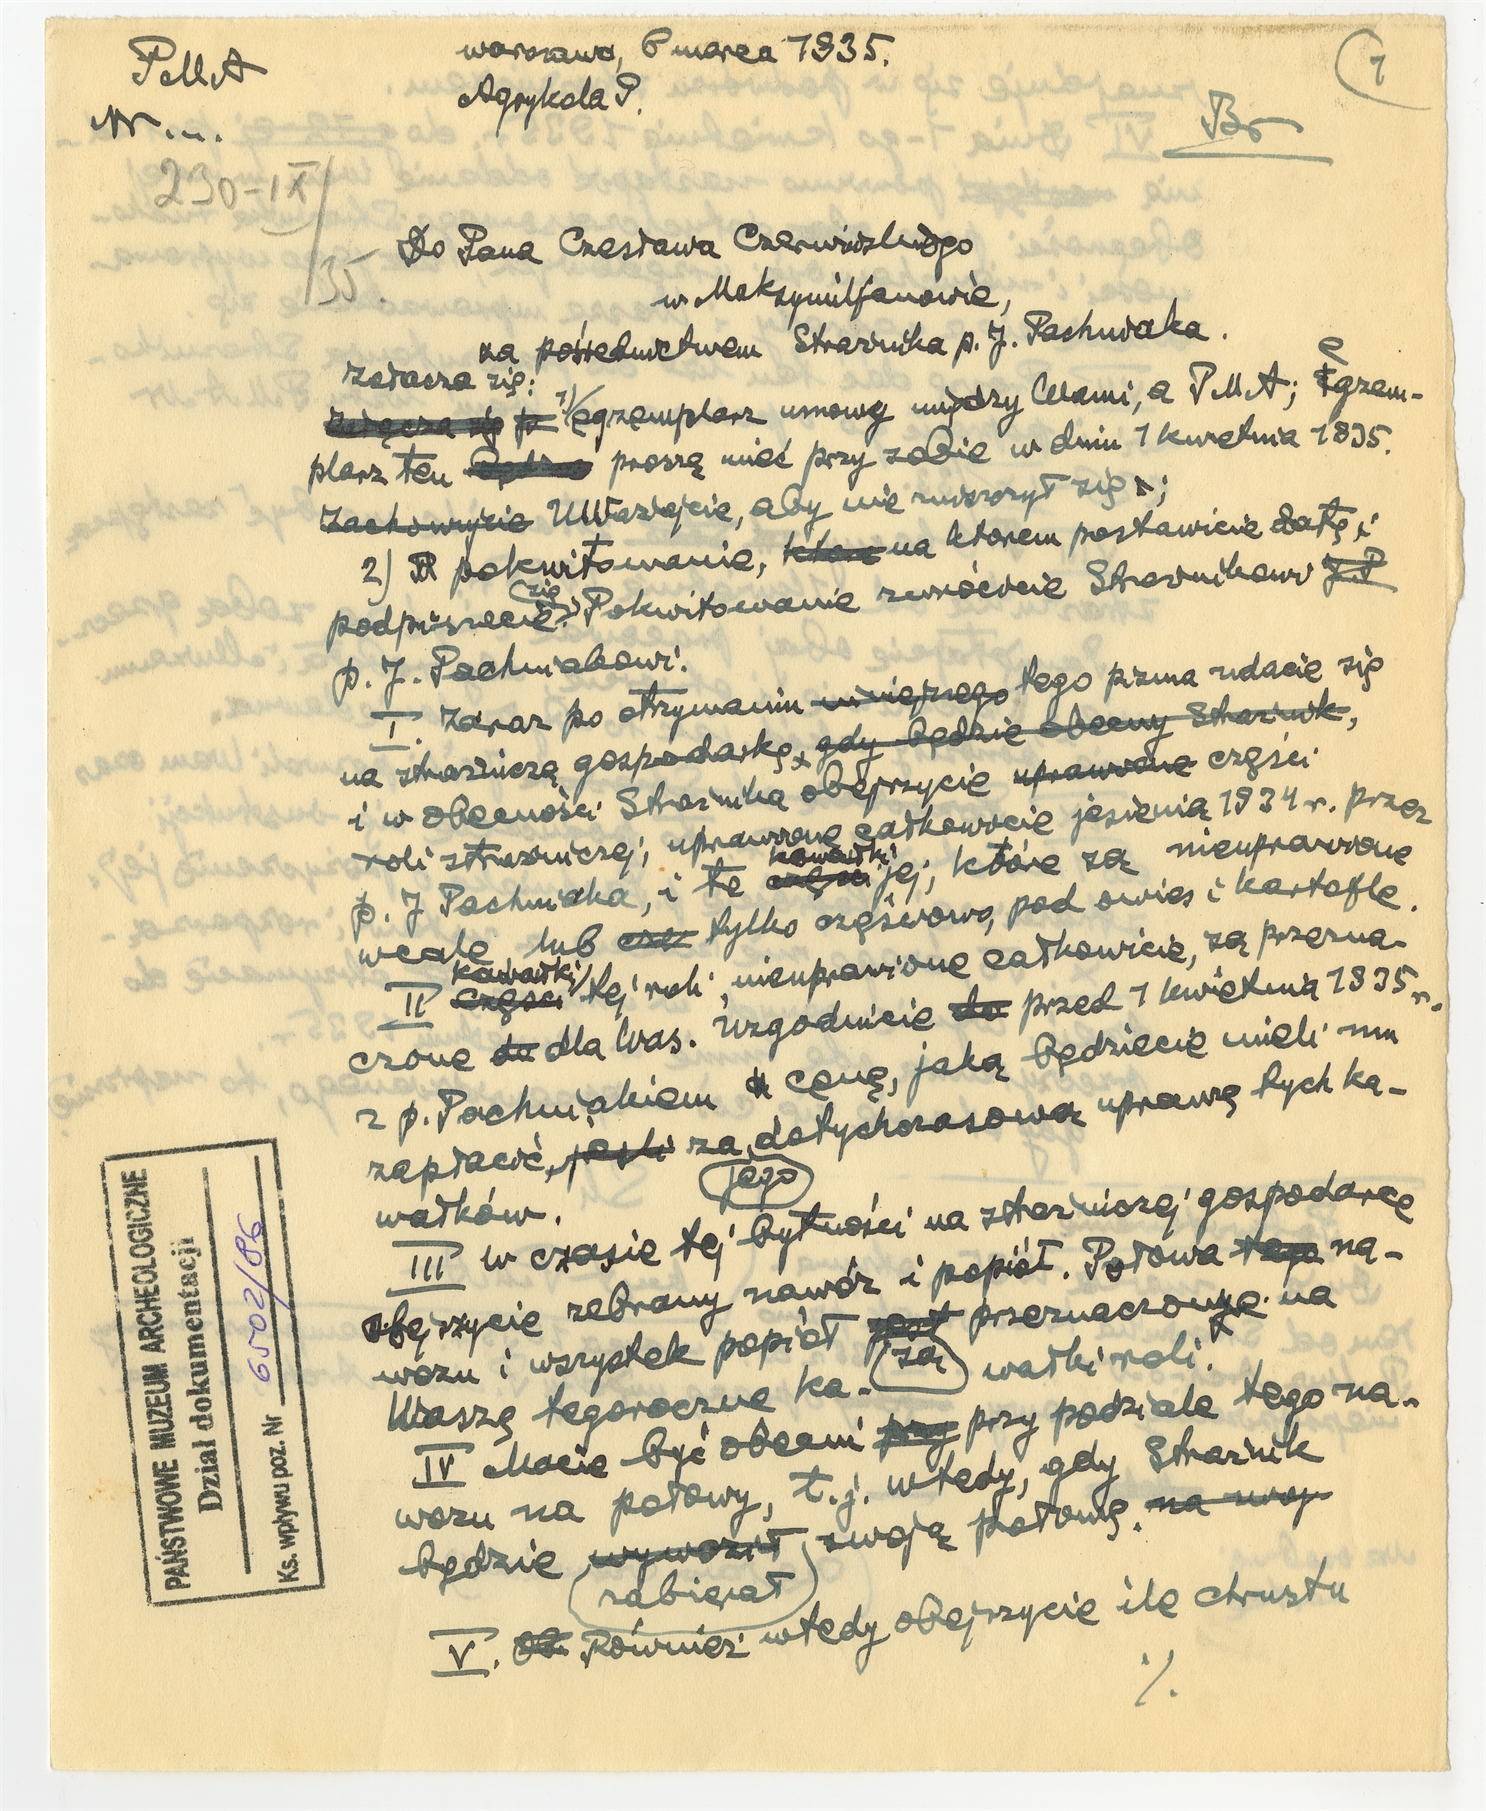 PMA
Nr...
230-IX/35.
Warszawa, 6 marca 1935.
Agrykola P.
1
Br
Do Pana Czesława Czerwińskiego
w Maksymiljanowie,
za pośrednictwem Strażnika p. J. Pachniaka.
Załącza się:
Załącza się 1/ egzemplarz umowy między Wami, a PMA; Egzem-
plarz ten proszę mieć przy sobie w dniu 1 kwietnia 1935.
Zachowujcie Uważajcie, aby nie zniszczył się;
2) pokwitowanie, które na którem postawicie datę i
podpiszecie się. Pokwitowanie zwróćcie Strażnikowi J.P
p. J. Pachniakowi.
I. Zaraz po otrzymaniu niniejszego tego pisma udacie się
na strażniczą gospodarkę, gdy będzie obecny Strażnik,
i w obecności Strażnika obejrzycie uprawione części
roli strażniczej, uprawione całkowicie jesienią 1934 r. przez
p. J Pachniaka, i te części kawałki jej, które są nieuprawione
wcale lub tylko częściowo, pod owies i kartofle.
II części kawałki tej roli, nieuprawione całkowicie, są przezna-
czone dla Was. Uzgodnicie do przed 1 kwietnia 1935 r.
z p. Pachniakiem cenę, jaką będziecie mieli mu
zapłacić, jeśli za jego dotychczasową uprawę tych ka-
wałków.
III W czasie tej bytności na strażniczej gospodarce
obejrzycie zebrany nawóz i popiół. Połowa tego na-
wozu i wszystek popiół jest są przeznaczone na
Waszę tegoroczne ka- wałki roli.
IV Macie być obecni przy przy podziale tego na-
wozu na połowy, t.j. wtedy, gdy Strażnik
będzie wywoził zabierał swoją połowę. na swoj
V. Ob. Również wtedy obejrzycie ile chrustu
./.
PAŃSTWOWE MUZEUM ARCHEOLOGICZNE
Dział dokumentacji
Ks. wpływu poz. Nr 6502/86